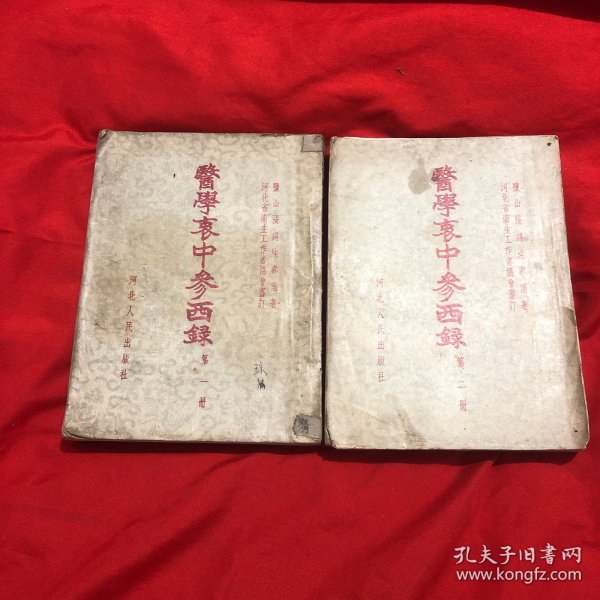 鹽山張錫純壽甫著
河北省衛生工作者協會審訂
醫學衷中參西錄
第一冊
河北人民出版社
鹽山張錫純壽甫著
河北省衛生工作者協會審訂
醫學衷中參西錄
第二冊
河北人民出版社
孔夫子旧书网
www.kongfz.com